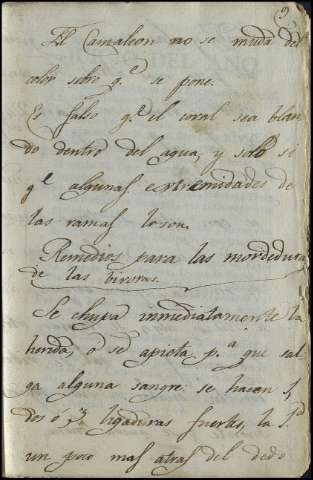 El Camaleon no se muda del
color sobre q.e se pone.
Es falso q.e el coral sea blan
do dentro del agua, y solo si
q.e algunas extremidades de
las ramas lo son.
Remedios para las mordedura
de las bivoras.
Se chupa inmediatamente la
herida, o se aprieta p.a que sal
ga alguna sangre: se hacen
dos ó 3 ligaduras fuertes, la 1.a
un poco mas atras del dedo